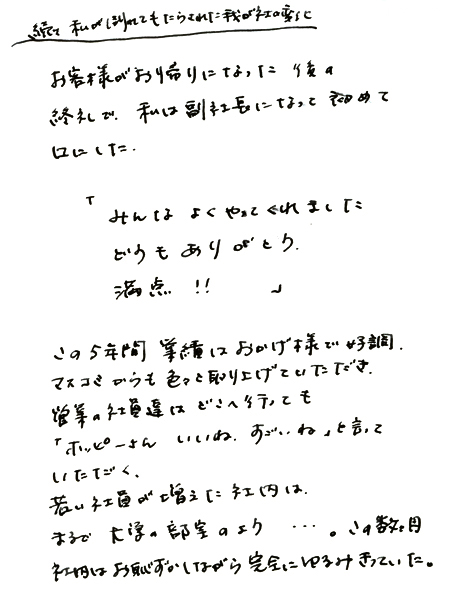 続て 私が倒れてもたらされた我が社の変化
お客様がお帰りになった後の
終礼で、私は副社長になって初めて
口にした。
「みんな よくやってくれました
どうもありがとう。
満点!! 」
この5年間 業績はおかげ様で好調。
マスコミからも色々と取り上げていただき、
営業の社員達は どこへ行っても
「ホッピーさん いいね、すごいね」と言って
いただく。
若い社員が増えた社内は、
まるで 大学の部室のよう …。この数ヶ月
社内はお恥ずかしながら完全にゆるみきっていた。